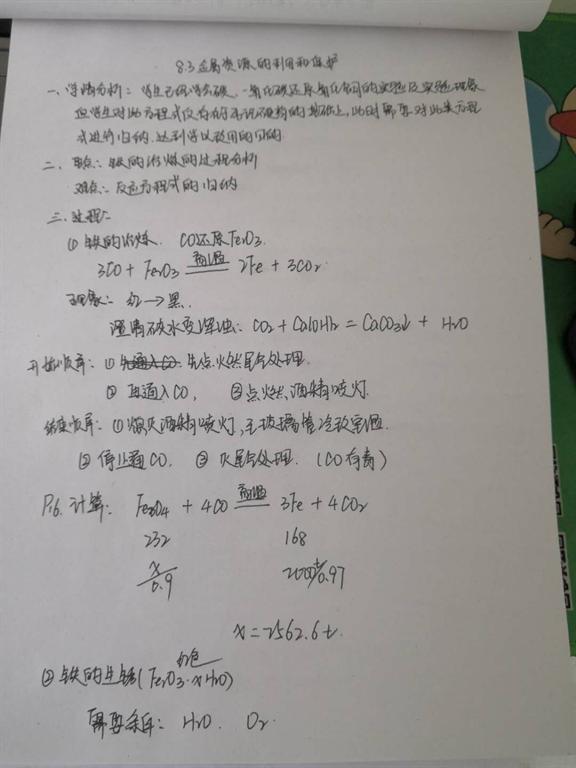 8.3 金属资源的利用和保护
一、学情分析: 学生已经学会碳、一氧化碳还原氧化铜的实验及实验现象
但学生对此方程式仅存在于死记硬背的基础上,此时需要对此类方程
式进行归纳.达到学以致用的目的.
二、重点: 铁的冶炼的过程分析
难点: 反应方程式的归纳
三、过程:
① 铁的冶炼. CO还原Fe2O3.
3CO + Fe2O3 高温 2Fe + 3CO2
现象: 红→黑.
澄清石灰水变浑浊: CO2 + Ca(OH)2 = CaCO3↓ + H2O
开始顺序: ① 先通入CO 先点燃尾气处理.
② 再通入CO, ③点燃酒精喷灯.
结束顺序: ①熄灭酒精喷灯,至玻璃管冷致室温.
② 停止通CO. ③ 灭尾气处理. (CO有毒)
P16.计算: Fe3O4 + 4CO 高温 3Fe + 4CO2
232 168
x/0.9 2000t×0.97
x=2562.6t.
红色
② 铁的生锈(Fe2O3·xH2O)
需要条件: H2O. O2.